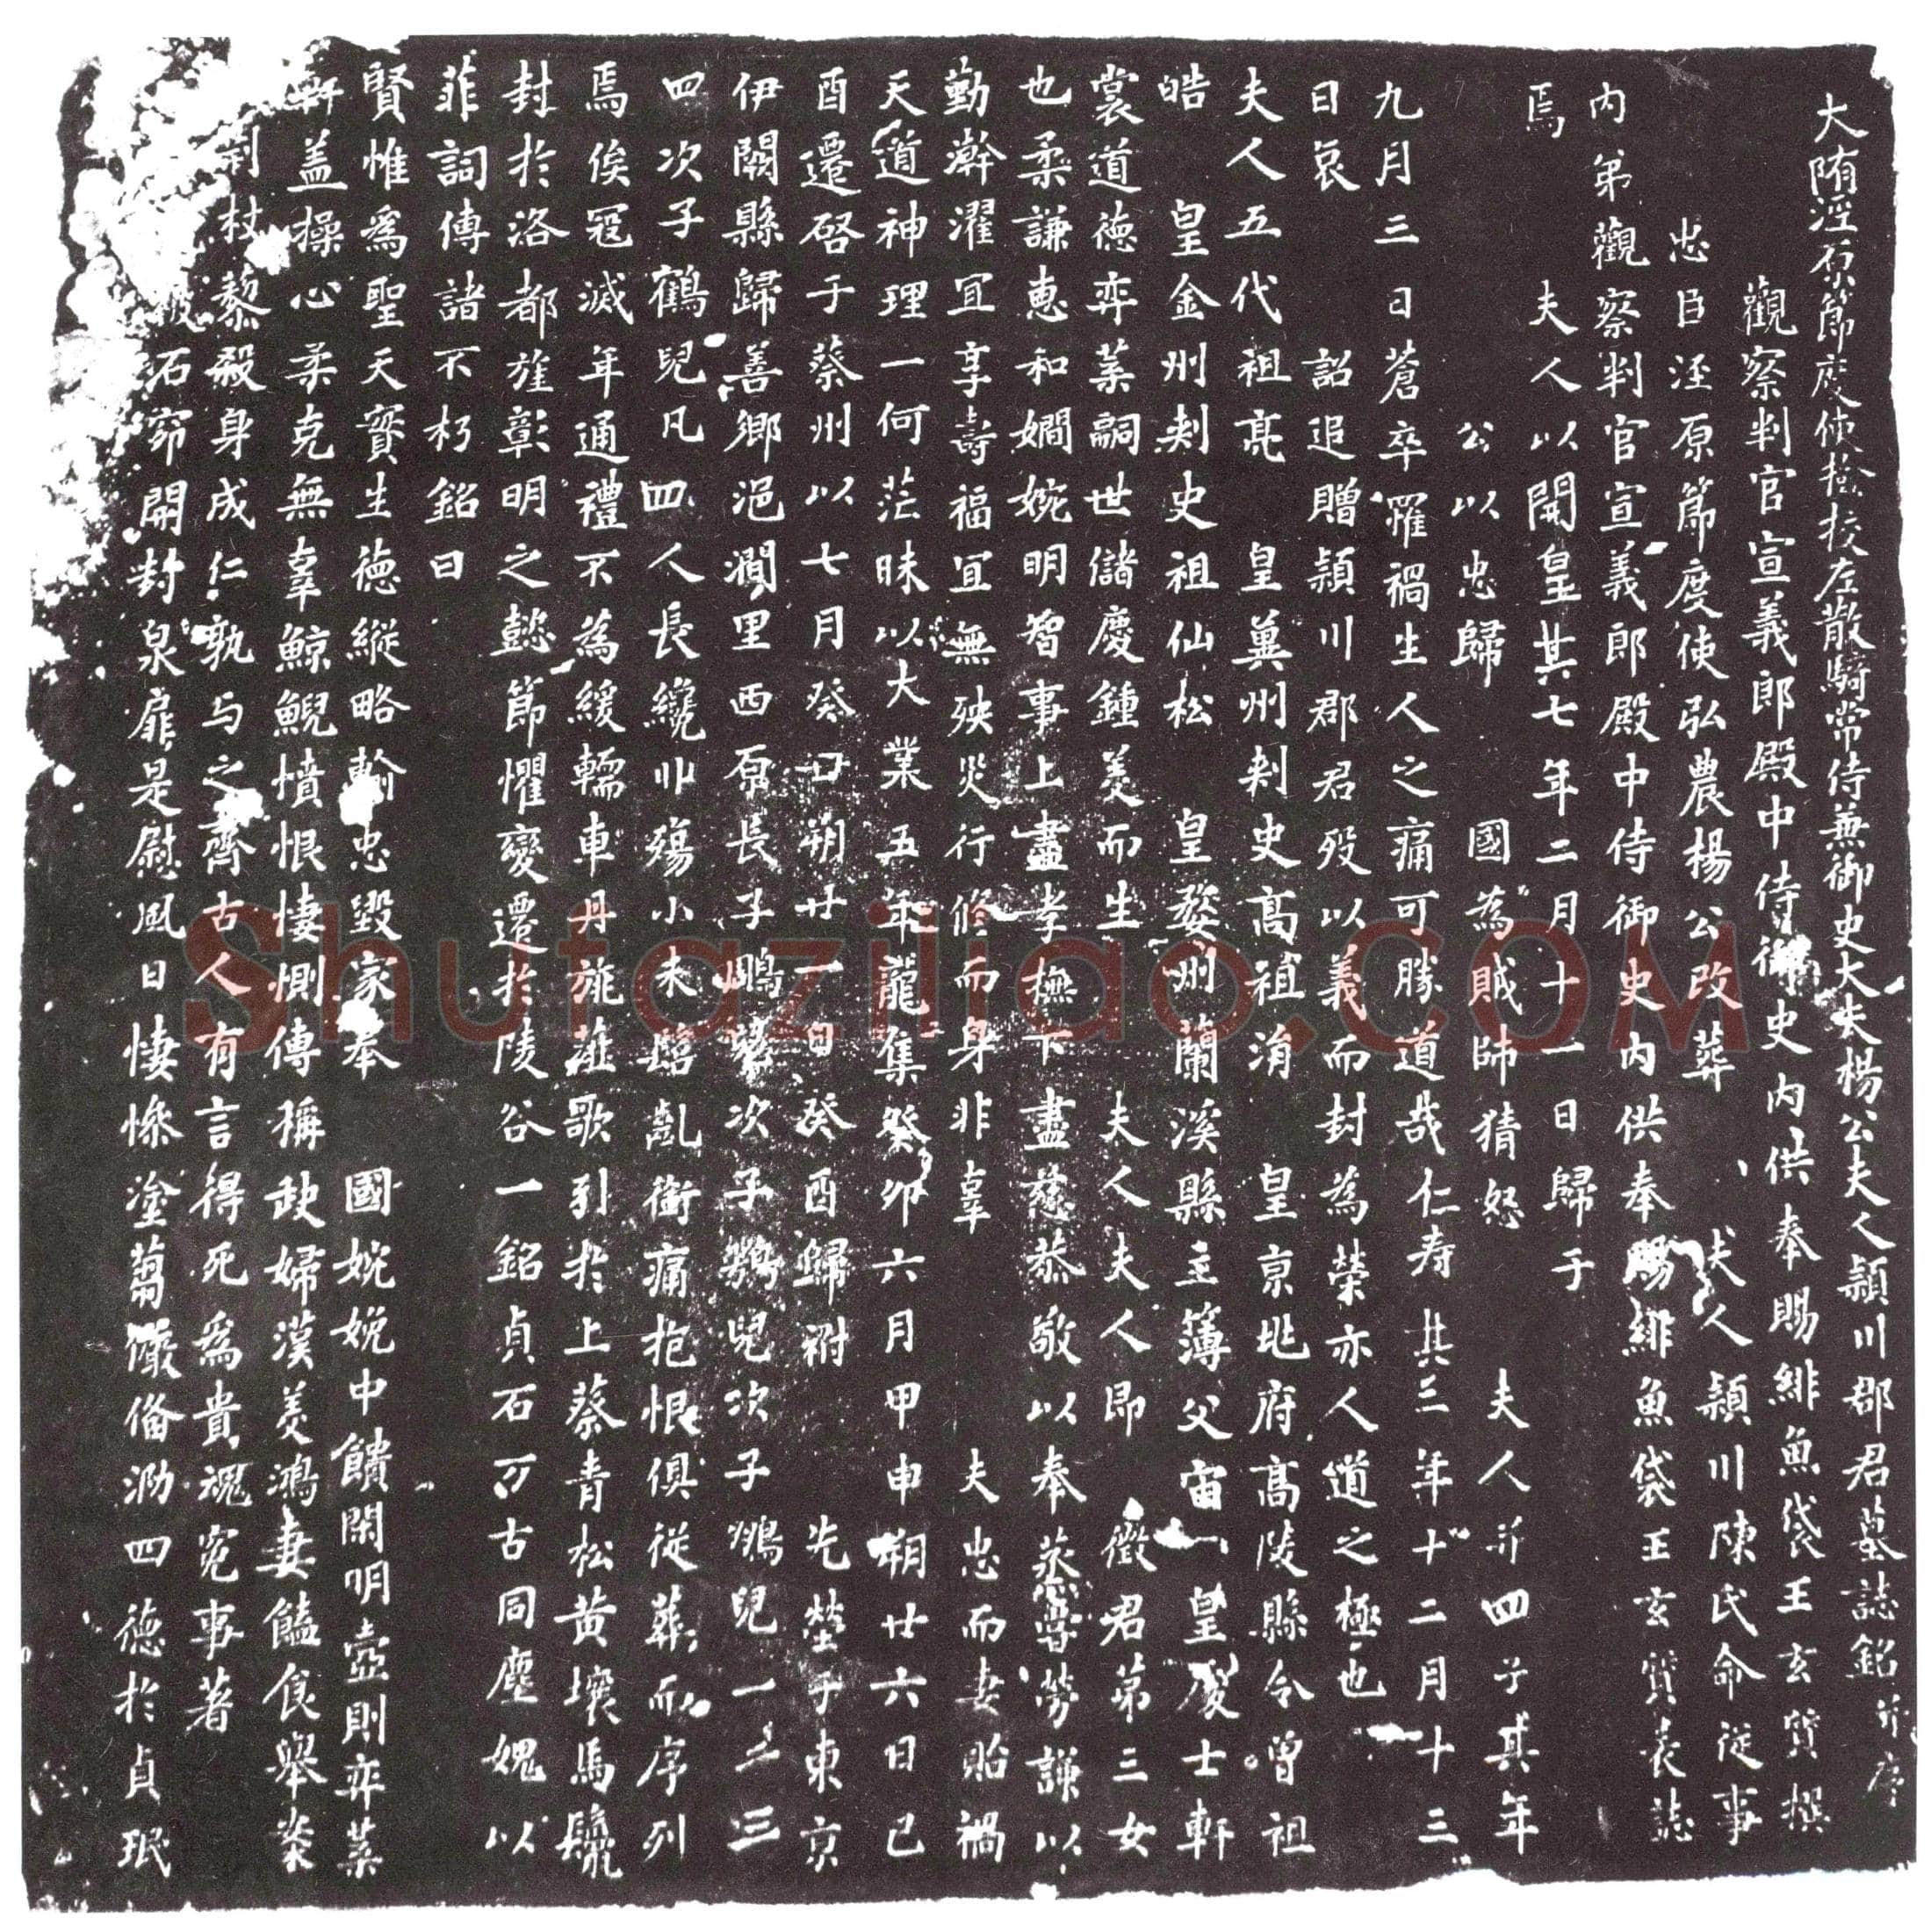 大隋涇原節度使撿挍左散騎常侍兼御史大夫楊公夫人潁川郡君墓誌銘并序
觀察判官宣義郎殿中侍御史內供奉賜緋魚袋王玄質撰
忠臣涇原節度使弘農楊公改葬 夫人潁川陳氏命從事
內弟觀察判官宣義郎殿中侍御史內供奉賜緋魚袋王玄質表誌
焉 夫人以開皇其七年二月十一日歸于
公以忠歸 國為賊帥猜怒 夫人并四子其年
九月三日蒼卒罹禍生人之痛可勝道哉仁寿其三年十二月十三
日哀 詔追贈潁川郡君歿以義而封為榮亦人道之極也
夫人五代祖亮 皇冀州刾史高祖消 皇京兆府高陵縣令曾祖
皓 皇金州刾史祖仙松 皇婺州蘭溪縣主簿父宙 皇處士軒
裳道德弈葉嗣世儲慶鍾美而生 夫人夫人即 徵君第三女
也柔謙惠和嫺婉明智事上盡孝撫下盡慈恭敬以奉蒸嘗勞謙以
勤澣濯宜享壽福宜無殃災行修而身非辜 夫忠而妻貽禍
天道神理一何茫昧以大業五年龍集癸卯六月甲申朔廿六日己
酉遷啓于蔡州以七月癸口朔廿一日癸酉歸祔 先塋于東京
伊闕縣歸善鄉浥澗里西原長子鵬 次子 兒次子鵷兒一女三
四次子鶴兒凡四人長纔丱殤小未臨亂銜痛抱恨俱從葬而序列
焉俟冦滅年通禮不為緩轜車丹旐薤歌引於上蔡青松黃壤馬鬣
封於洛都旌彰明之懿節懼變遷於陵谷一銘貞石万古同塵媿以
菲詞傳諸不朽銘曰
賢惟為聖天寶生德縱略輸忠毀家奉 國婉娩中饋閑明壼則弈葉
軒盖操心柔克無辜鯨鯢憤恨悽惻傳稱 婦漢美鴻妻饁食舉案
荊杖藜殺身成仁孰与之齊古人有言得死為貴魂寃事著
石窌開封泉扉是慰風日悽慘塗蒭儼俻泐四德於貞珉
Shufaziliao.COM